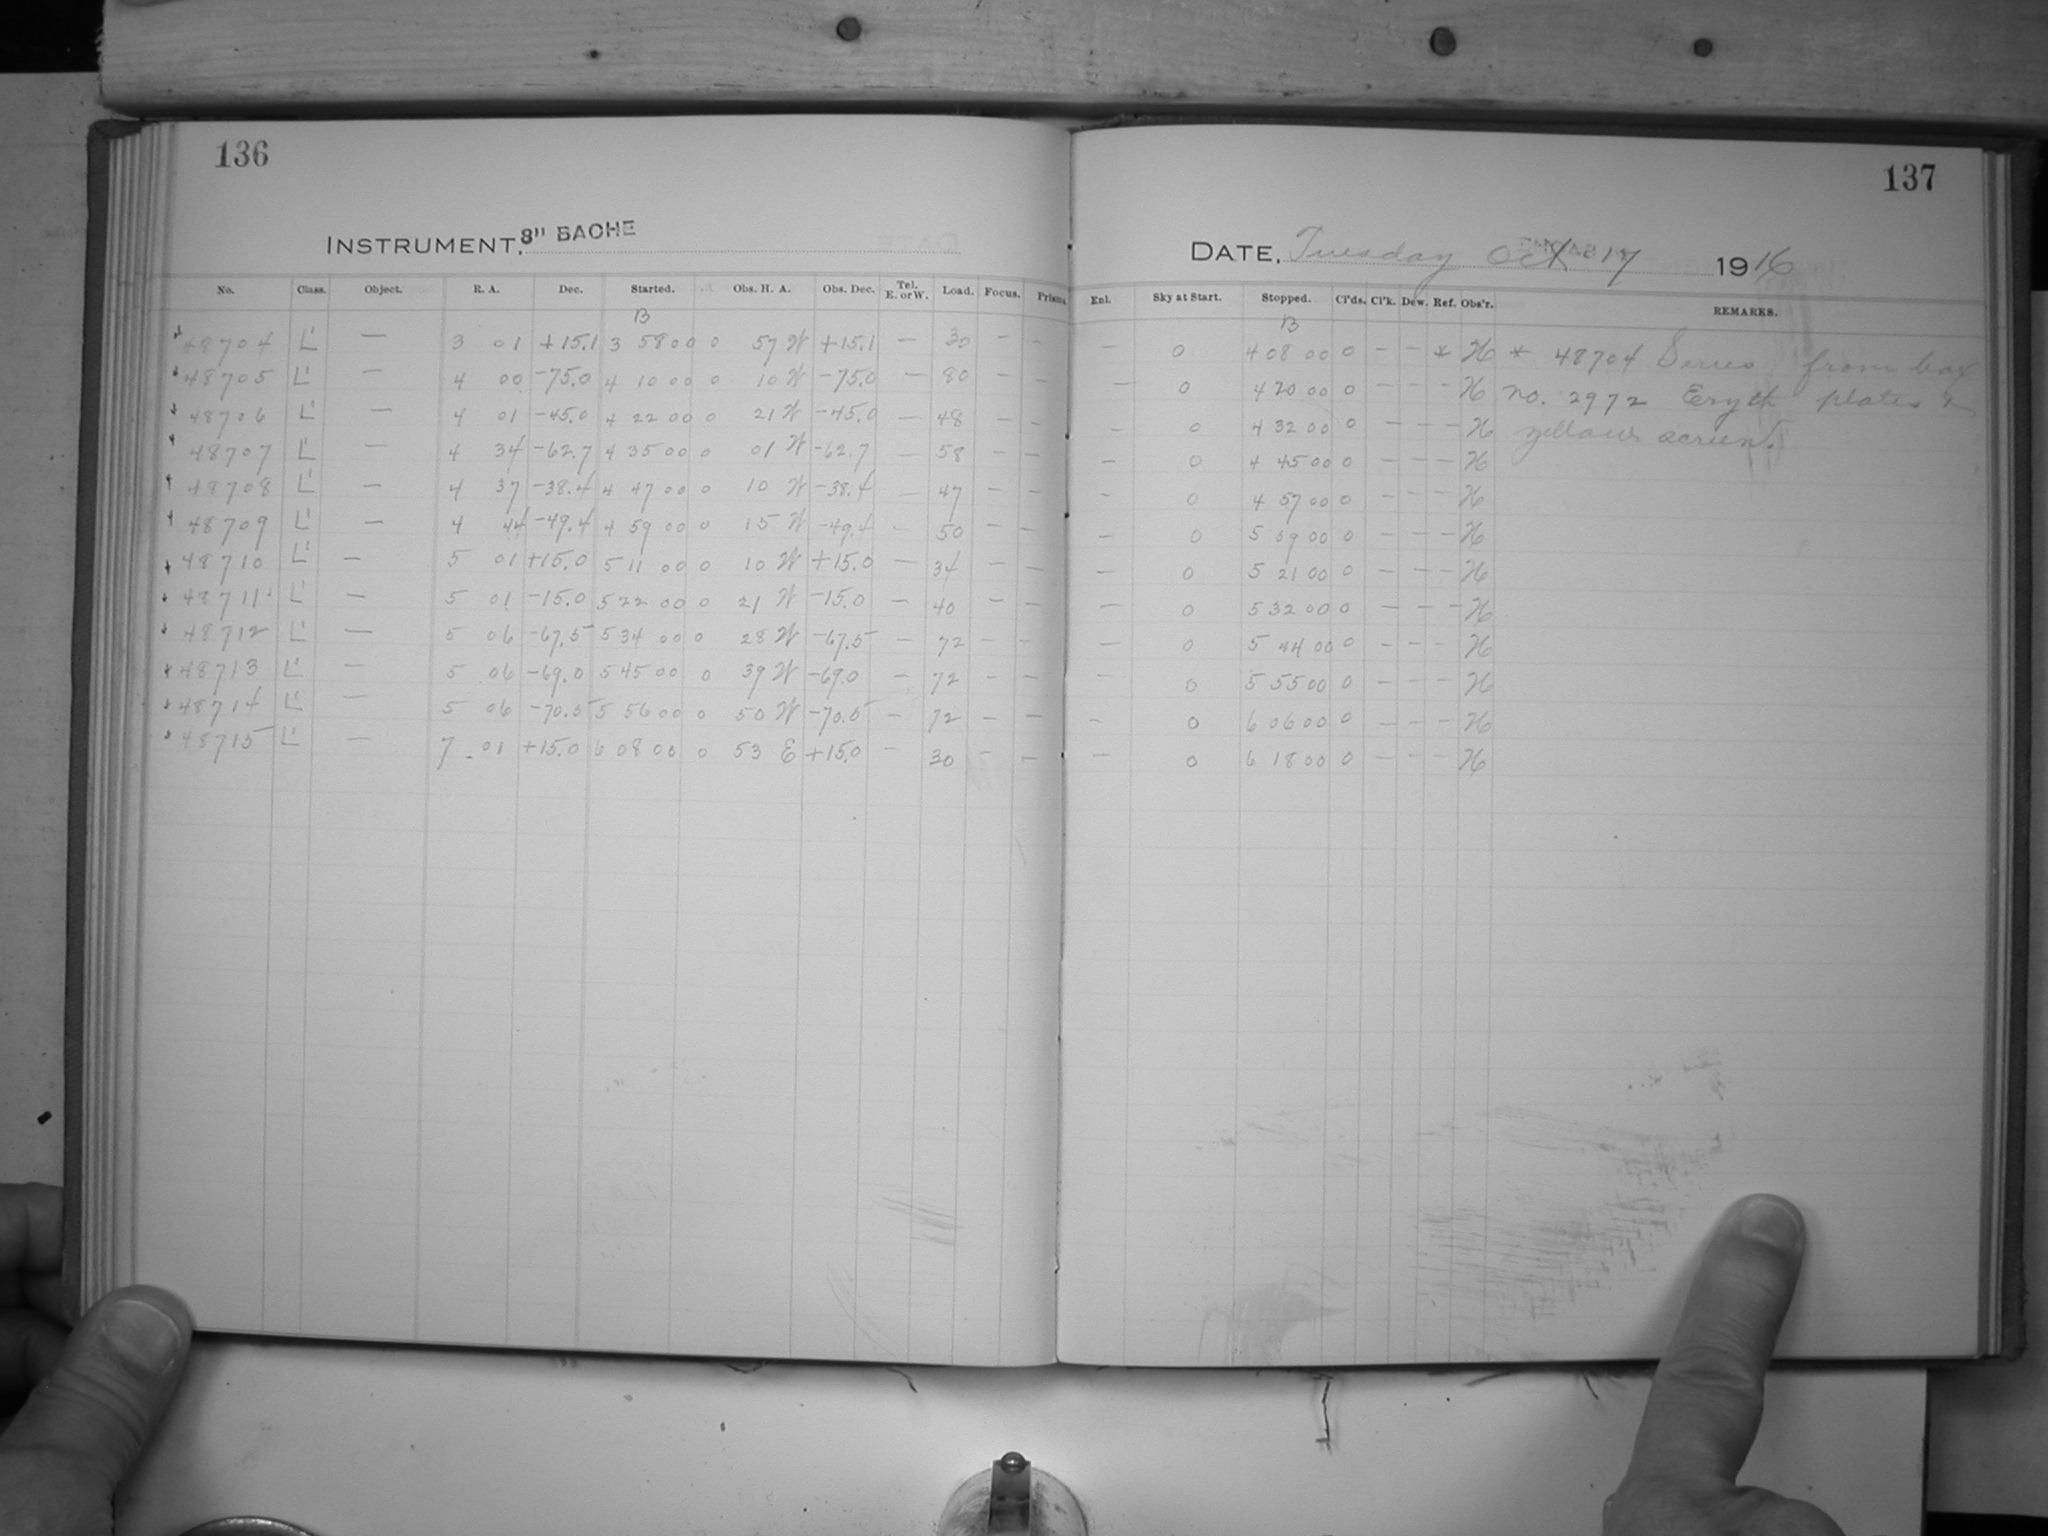 136
INSTRUMENT, 8" BACHE
No. Class. Object. R. A. Dec. Started. Obs. H. A. Obs. Dec. Tel. E. or W. Load. Focus. Prisms
B
48704 L' — 3 01 +15.1 3 58 00 0 57 W +15.1 — 30 — –
48705 L' — 4 00 -75.0 4 10 00 0 10 W -75.0 — 80 – –
48706 L' — 4 01 -45.0 4 22 00 0 21 W -45.0 — 48 – –
48707 L' — 4 34 -62.7 4 35 00 0 01 W -62.7 — 58 – –
48708 L' — 4 37 -38.4 4 47 00 0 10 W -38.4 — 47 – –
48709 L' — 4 44 -49.4 4 59 00 0 15 W -49.4 – 50 – –
48710 L' — 5 01 +15.0 5 11 00 0 10 W +15.0 – 34 – –
48711 L' — 5 01 -15.0 5 22 00 0 21 W -15.0 – 40 – –
48712 L' — 5 06 -67.5 5 34 00 0 28 W -67.5 – 72 – –
48713 L' — 5 06 -69.0 5 45 00 0 39 W -69.0 – 72 – –
48714 L' — 5 06 -70.5 5 56 00 0 50 W -70.5 – 72 – –
48715 L' — 7 01 +15.0 6 08 00 0 53 E +15.0 – 30 – –
137
DATE, Tuesday Oct 17 1916
Enl. Sky at Start. Stopped. Cl'ds. Cl'k. Dew. Ref. Obs'r. REMARKS.
B
— 0 4 08 00 0 – – * H * 48704 Series from box
— 0 4 20 00 0 – – – H no. 2972 Eryth plates &
– 0 4 32 00 0 – – – H yellow screen.
– 0 4 45 00 0 – – – H
– 0 4 57 00 0 – – – H
– 0 5 09 00 0 – – – H
– 0 5 21 00 0 – – – H
– 0 5 32 00 0 – – – H
– 0 5 44 00 0 – – – H
– 0 5 55 00 0 – – – H
– 0 6 06 00 0 – – – H
– 0 6 18 00 0 – – – H